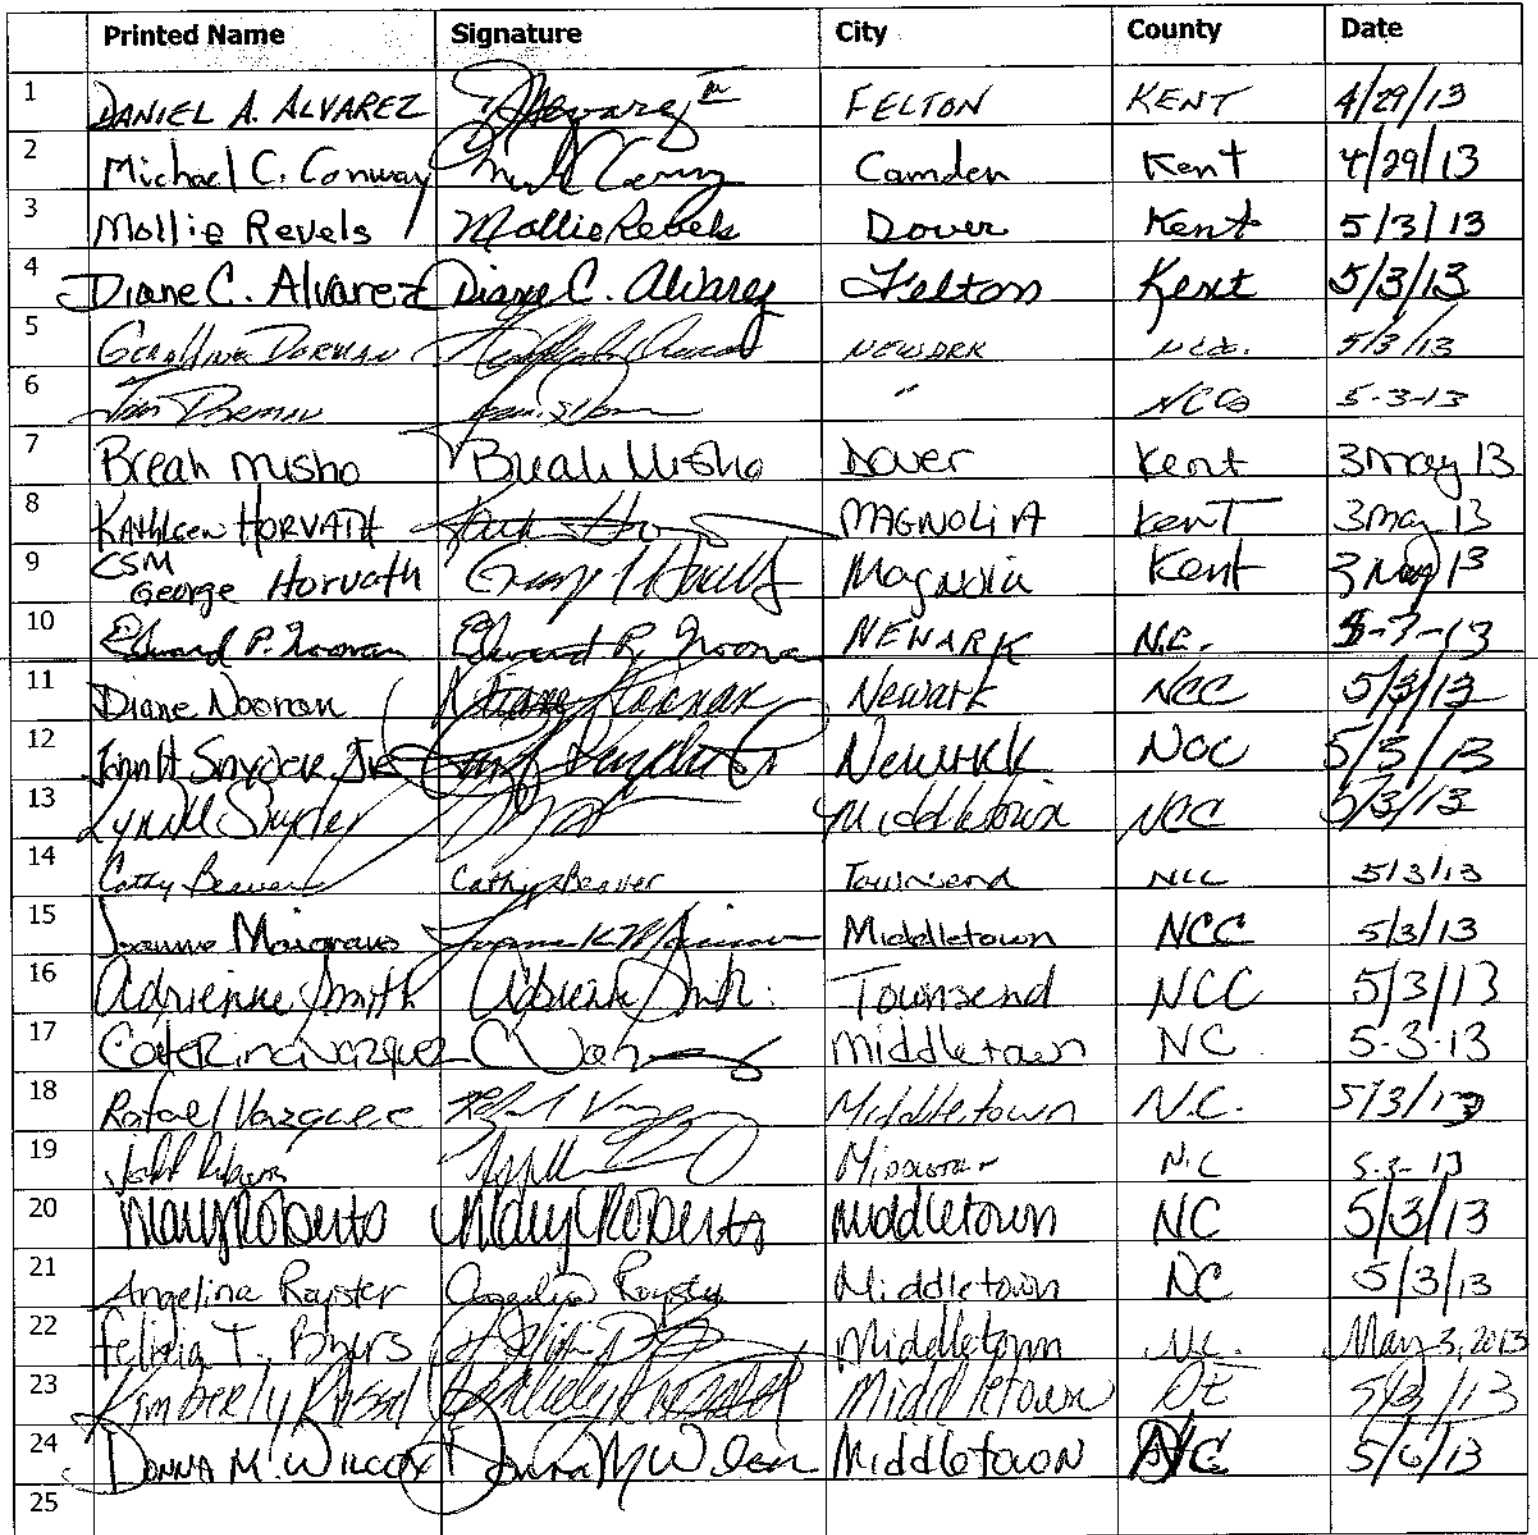 Printed Name Signature City County Date
1 DANIEL A. ALVAREZ Alvarez III FELTON KENT 4/29/13
2 Michael C. Conway Camden Kent 4/29/13
3 Mollie Revels Mollie Revels Dover Kent 5/3/13
4 Diane C. Alvarez Diane C. Alvarez Felton Kent 5/3/13
5 DORMAN NEWARK 5/3/13
6 " NCCo 5-3-13
7 Breah Misho Breah Misho Dover Kent 3 May 13
8 KATHleen HORVATH MAGNOLIA Kent 3 may 13
9 CSM George Horvath Magnolia Kent 3 May 13
10 Edward P. Noonan Edward P. Noonan NEWARK N.C. 5-3-13
11 Diane Noonan Diane Noonan Newark NCC 5/3/13
12 John H Snyder Jr Newark NCC 5/3/13
13 Snyder Middletown NCC 5/3/13
14 Cathy Beaver Cathy Beaver Townsend NCC 5/3/13
15 Joanne Middletown NCC 5/3/13
16 Adrienne Smith Adrienne Smith Townsend NCC 5/3/13
17 Caterina Vazquez Middletown NC 5-3-13
18 Rafael Vazquez Middletown N.C. 5/3/13
19 N.C 5-3-13
20 Mary Roberts Mary Roberts Middletown NC 5/3/13
21 Angelina Royster Middletown NC 5/3/13
22 Felicia T. Byers Middletown N.C. May 3, 2013
23 Kimberly Middletown DE 5/3/13
24 Donna M. Wilcox Donna M Middletown NC 5/6/13
25